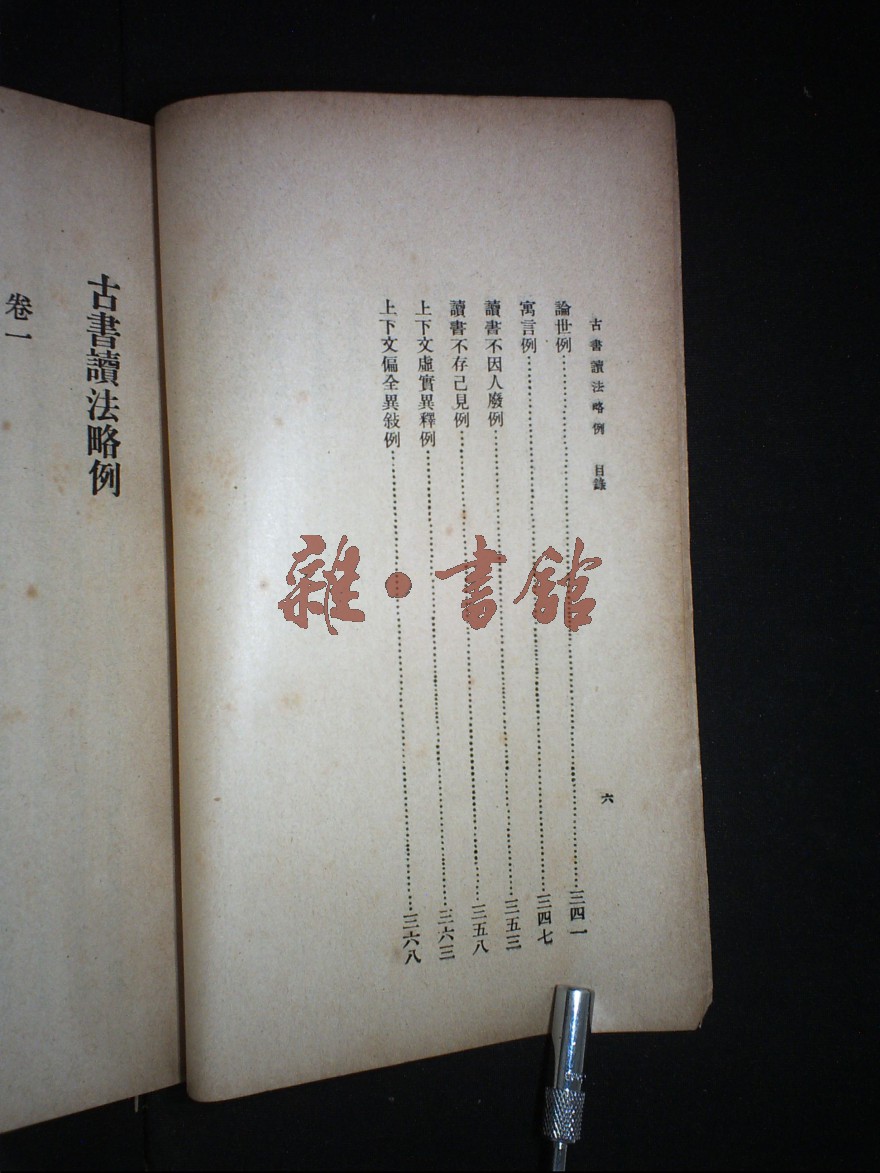 古書讀法略例 目錄 六
論世例……三四一
寓言例……三四七
讀書不因人廢例……三五三
讀書不存己見例……三五八
上下文虛實異釋例……三六三
上下文偏全異敍例……三六八
古書讀法略例
卷一
雜·書館